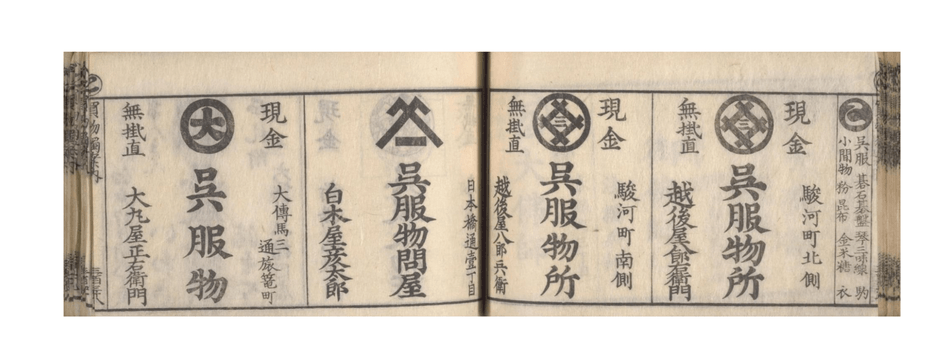 呉服 碁石碁盤 琴三味線
小間物 粉 昆布 金米糖 衣
駿河町北側
現金
呉服物所
無掛直
越後屋八郎右衛門
駿河町南側
現金
三
呉服物所
無掛直
越後屋八郎兵衛
日本橋通壹丁目
呉服物問屋
白木屋彦太郎
大傳馬三
通旅篭町
現金
大
呉服物
無掛直
大丸屋正右衛門